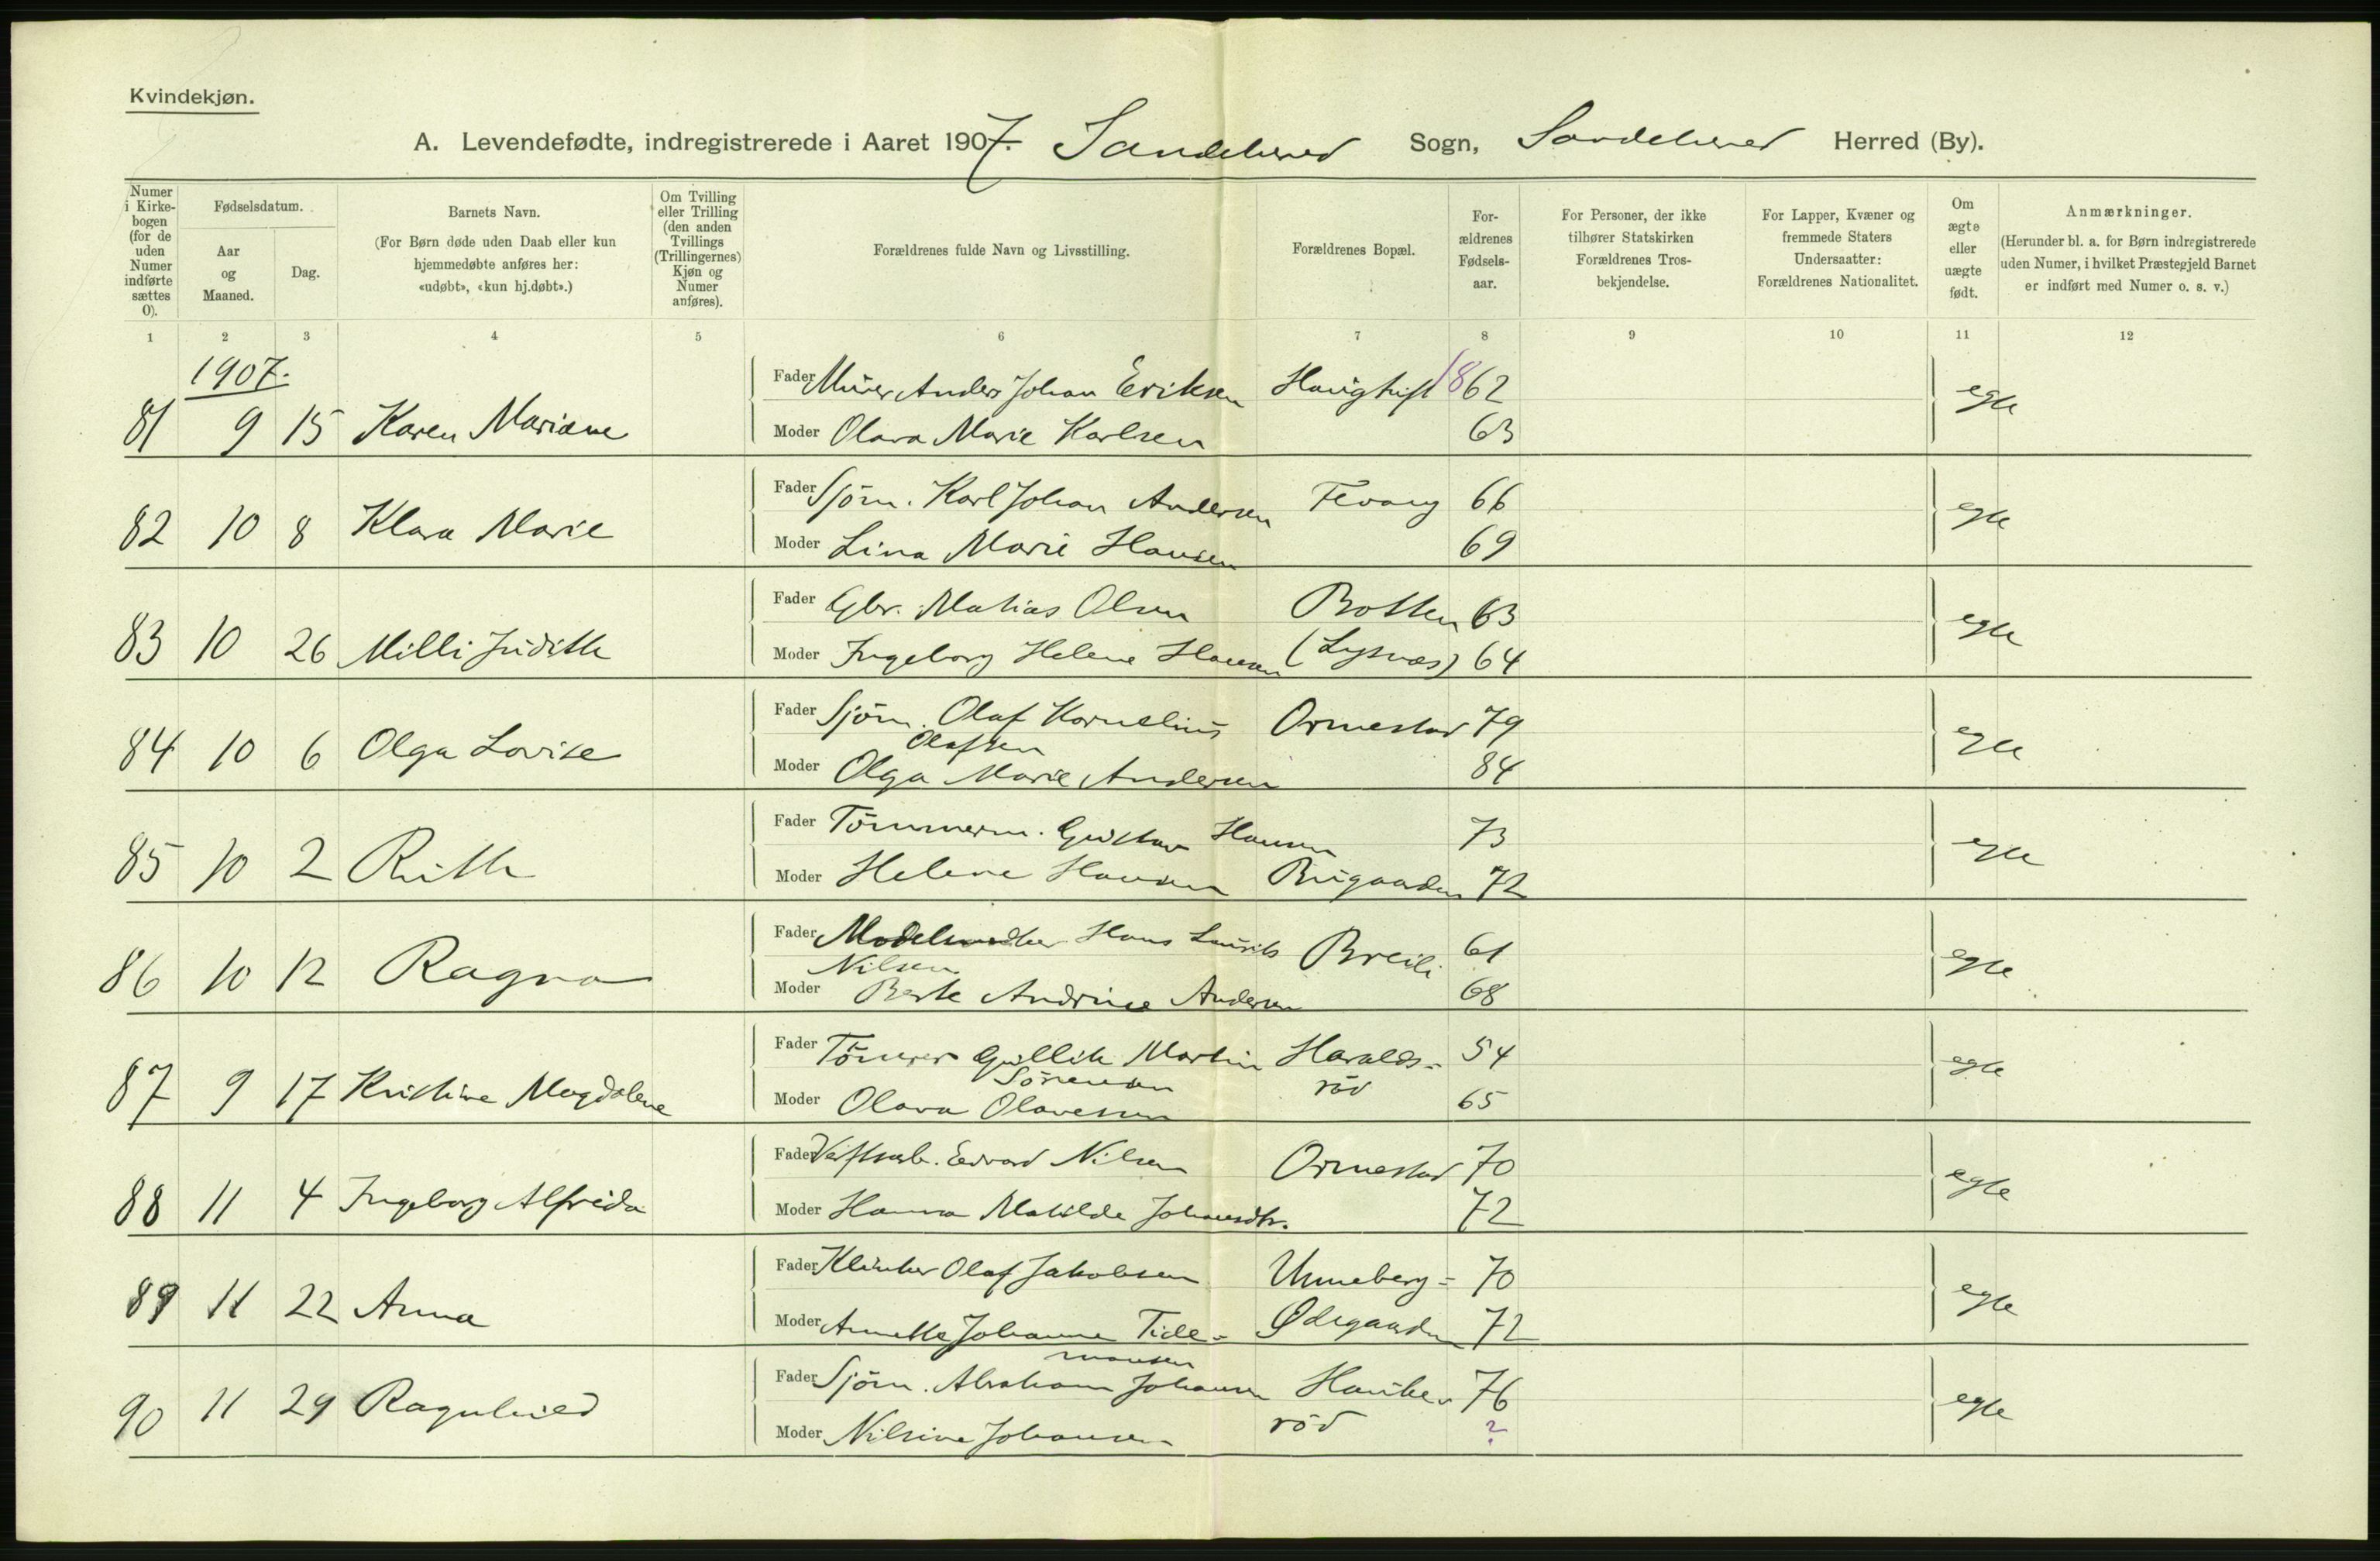 Kvindekjøn.
A. Levendefødte, indregistrerede i Aaret 1907. Sandeherred Sogn, Sandeherred Herred (By).
Numer i Kirke-bogen (for de uden Numer indførte sættes 0).
Fødselsdatum.
Aar og Maaned.
Dag.
Barnets Navn.
(For Børn døde uden Daab eller kun hjemmedøbte anføres her: «udøbt», «kun hj.døbt».)
Om Tvilling eller Trilling (den anden Tvillings (Trillingernes) Kjøn og Numer anføres).
Forældrenes fulde Navn og Livsstilling.
Forældrenes Bopæl.
For-ældrenes Fødsels-aar.
For Personer, der ikke tilhører Statskirken Forældrenes Tros-bekjendelse.
For Lapper, Kvæner og fremmede Staters Undersaatter: Forældrenes Nationalitet.
Om ægte eller uægte født.
Anmærkninger.
(Herunder bl. a. for Børn indregistrerede uden Numer, i hvilket Præstegjeld Barnet er indført med Numer o. s. v.)
1 2 3 4 5 6 7 8 9 10 11 12
1907.
Fader Murer Anders Johan Eriksen 1862
81 9 15 Karen Mariane egte
Moder Olava Marie Karlsen 63
Fader Sjöm. Karl Johan Andersen Fevang 66
82 10 8 Klara Marie egte
Moder Lina Marie Hansen 69
Fader Gbr. Matias Olsen Botten 63
83 10 26 Milli Judith egte
Moder Ingeborg Helene Hansen (Lysnæs) 64
Fader Sjöm. Olaf Kornelius Ormestad 79
Olafsen
84 10 6 Olga Lovise egte
Moder Olga Marie Andersen 84
Fader Tömmerm. Gustav Hansen 73
85 10 2 Ruth egte
Moder Helene Hansen Bugaarden 72
Fader Hans Laurits Breili 61
Nilsen
86 10 12 Ragna egte
Moder Berte Andrine Andersen 68
Fader Tömrer Gullik Martin Haralds- 54
Sörensen röd
87 9 17 Kristine Magdalene egte
Moder Olava Olavesen 65
Fader Værftsarb. Edvard Nilsen Ormestad 70
88 11 4 Ingeborg Alfrida egte
Moder Hanna Matilde Johansdtr. 72
Fader Klinker Olaf Jakobsen Unneberg- 70
89 11 22 Anna egte
Moder Annette Johanne Tide- Ødegaarden 72
mansen
Fader Sjöm. Abraham Johansen Hauke- 76
90 11 29 Ragnhild egte
Moder Nilsine Johansen röd ?